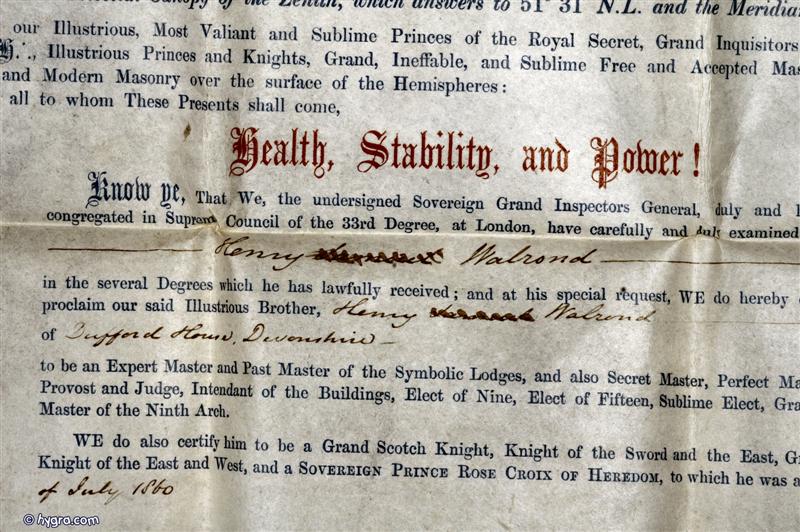 Canopy of the Zenith, which answers to 51° 31 N.L. and the Meridian
our Illustrious, Most Valiant and Sublime Princes of the Royal Secret, Grand Inquisitors
H∴, Illustrious Princes and Knights, Grand, Ineffable, and Sublime Free and Accepted Mas
and Modern Masonry over the surface of the Hemispheres:
all to whom These Presents shall come,
Health, Stability, and Power!
Know ye, That We, the undersigned Sovereign Grand Inspectors General, duly and l
congregated in Supreme Council of the 33rd Degree, at London, have carefully and duly examined
Henry Walrond
in the several Degrees which he has lawfully received; and at his special request, WE do hereby
proclaim our said Illustrious Brother, Henry Walrond
of Dufford House, Devonshire
to be an Expert Master and Past Master of the Symbolic Lodges, and also Secret Master, Perfect Ma
Provost and Judge, Intendant of the Buildings, Elect of Nine, Elect of Fifteen, Sublime Elect, Gra
Master of the Ninth Arch.
WE do also certify him to be a Grand Scotch Knight, Knight of the Sword and the East, G
Knight of the East and West, and a SOVEREIGN PRINCE ROSE CROIX OF HEREDOM, to which he was a
of July 1860
© hygra.com